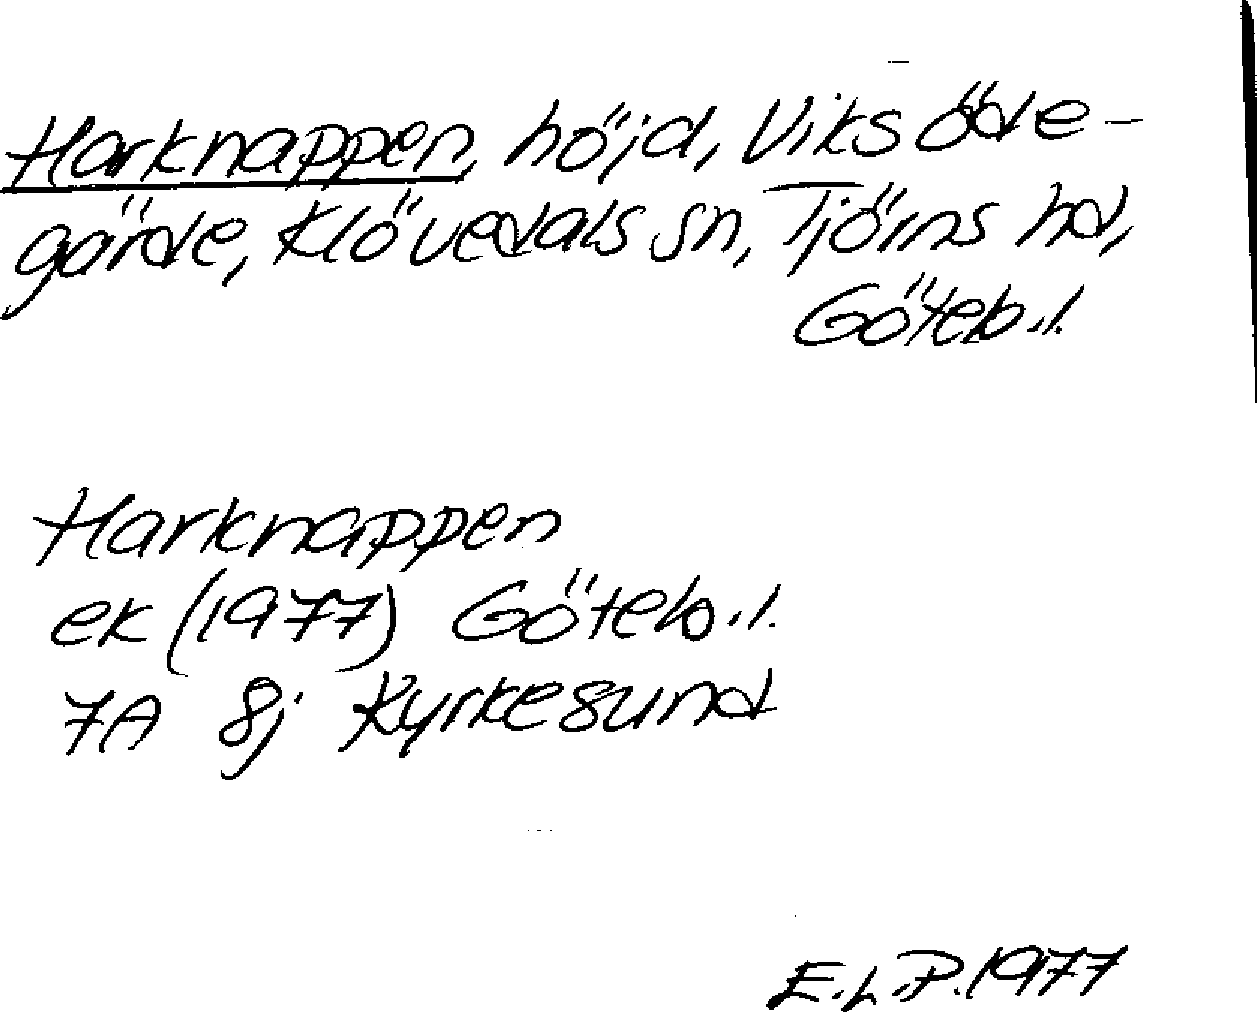 Harknappen, höjd, Viks öde-
gärde, Klövedals sn, Tjörns hd,
Göteb.l.
Harknappen
ek (1977) Göteb.l.
7A 8j Kyrkesund
E.L.P. 1977